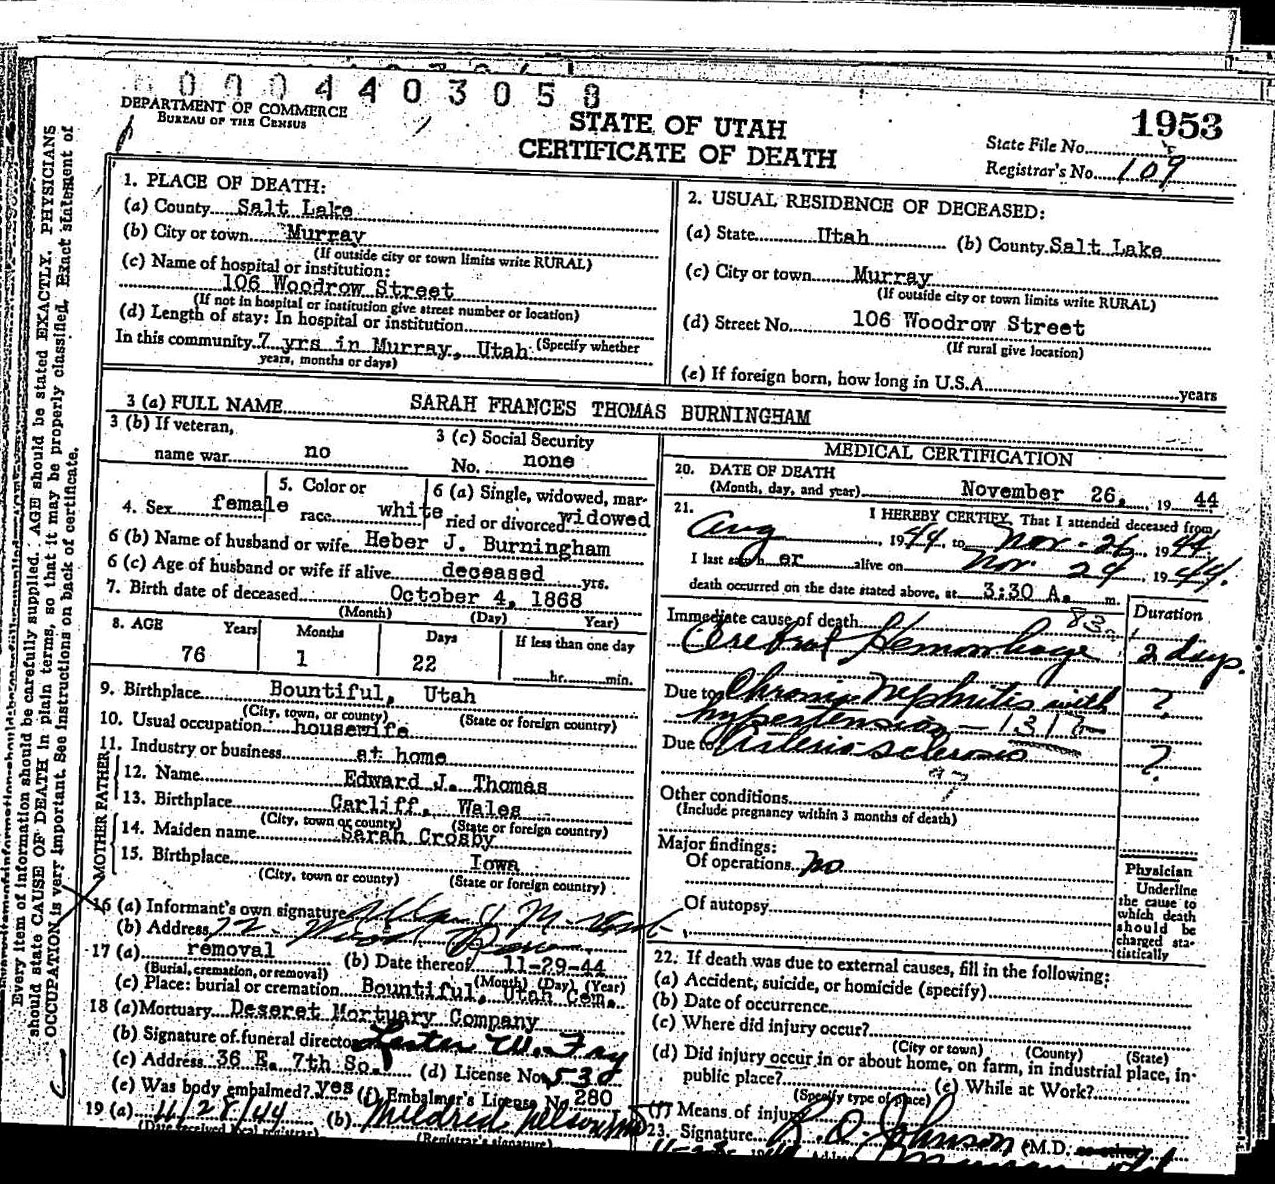 0004403058
DEPARTMENT OF COMMERCE
BUREAU OF THE CENSUS
STATE OF UTAH
CERTIFICATE OF DEATH
1953
State File No.
Registrar's No. 109
Every item of information should be carefully supplied. AGE should be stated EXACTLY. PHYSICIANS
should state CAUSE OF DEATH in plain terms, so that it may be properly classified. Exact statement of
OCCUPATION is very important. See instructions on back of certificate.
1. PLACE OF DEATH:
(a) County Salt Lake
(b) City or town Murray
(If outside city or town limits write RURAL)
(c) Name of hospital or institution:
106 Woodrow Street
(If not in hospital or institution give street number or location)
(d) Length of stay: In hospital or institution
In this community 7 yrs in Murray, Utah (Specify whether
years, months or days)
2. USUAL RESIDENCE OF DECEASED:
(a) State Utah (b) County Salt Lake
(c) City or town Murray
(If outside city or town limits write RURAL)
(d) Street No. 106 Woodrow Street
(If rural give location)
(e) If foreign born, how long in U.S.A. years
3 (a) FULL NAME SARAH FRANCES THOMAS BURNINGHAM
3 (b) If veteran,
name war no
3 (c) Social Security
No. none
4. Sex female
5. Color or
race white
6 (a) Single, widowed, mar-
ried or divorced widowed
6 (b) Name of husband or wife Heber J. Burningham
6 (c) Age of husband or wife if alive deceased yrs.
7. Birth date of deceased October 4, 1868
(Month) (Day) Year)
8. AGE Years Months Days If less than one day
76 1 22 hr. min.
9. Birthplace Bountiful, Utah
(City, town, or county) (State or foreign country)
10. Usual occupation housewife
11. Industry or business at home
FATHER
12. Name Edward J. Thomas
13. Birthplace Carliff, Wales
(City, town or county) (State or foreign country)
MOTHER
14. Maiden name Sarah Crosby
15. Birthplace Iowa
(City, town or county) (State or foreign country)
16 (a) Informant's own signature
(b) Address
17 (a) removal (b) Date thereof 11-29-44
(Burial, cremation, or removal) (Month) (Day) (Year)
(c) Place: burial or cremation Bountiful, Utah Cem.
18 (a) Mortuary Deseret Mortuary Company
(b) Signature of funeral director Lester W. Fry
(c) Address 36 E. 7th So. (d) License No. 538
(e) Was body embalmed? yes (f) Embalmer's License No. 280
19 (a) 11/28/44 (b) Mildred Nelson
(Date received local registrar) (Registrar's signature)
MEDICAL CERTIFICATION
20. DATE OF DEATH
(Month, day, and year) November 26, 19 44
21. I HEREBY CERTIFY, That I attended deceased from
Aug 1944, to Nov-26, 1944.
I last saw h er alive on Nov 24, 1944.
death occurred on the date stated above, at 3:30 A. m.
Immediate cause of death 83a Duration
Cerebral Hemorrhage 2 days.
Due to Chronic Nephritis with ?
hypertension - 131b
Due to Arterio-sclerosis ?
97
Other conditions
(Include pregnancy within 3 months of death)
Major findings:
Of operations no
Of autopsy
Physician
Underline
the cause to
which death
should be
charged sta-
tistically
22. If death was due to external causes, fill in the following:
(a) Accident, suicide, or homicide (specify)
(b) Date of occurrence
(c) Where did injury occur?
(City or town) (County) (State)
(d) Did injury occur in or about home, on farm, in industrial place, in
public place? (e) While at Work?
(Specify type of place)
(f) Means of injury
23. Signature R. O. Johnson (M.D. or other)